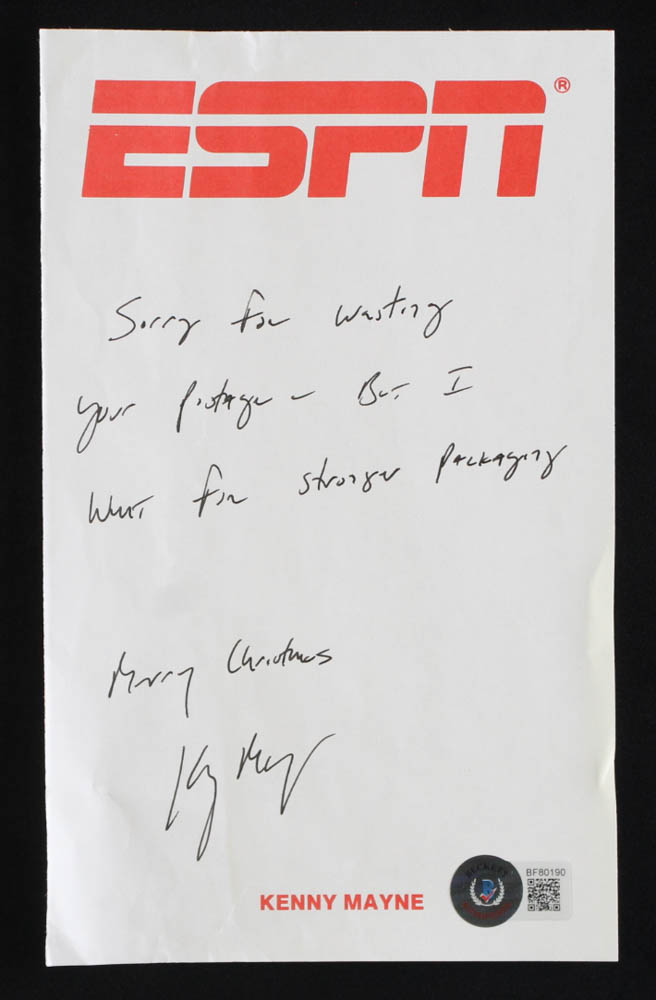 ESPN®
Sorry for wasting
your postage - But I
Went for stronger packaging
Merry Christmas
Kenny Mayne
KENNY MAYNE
BECKETT
BF80190